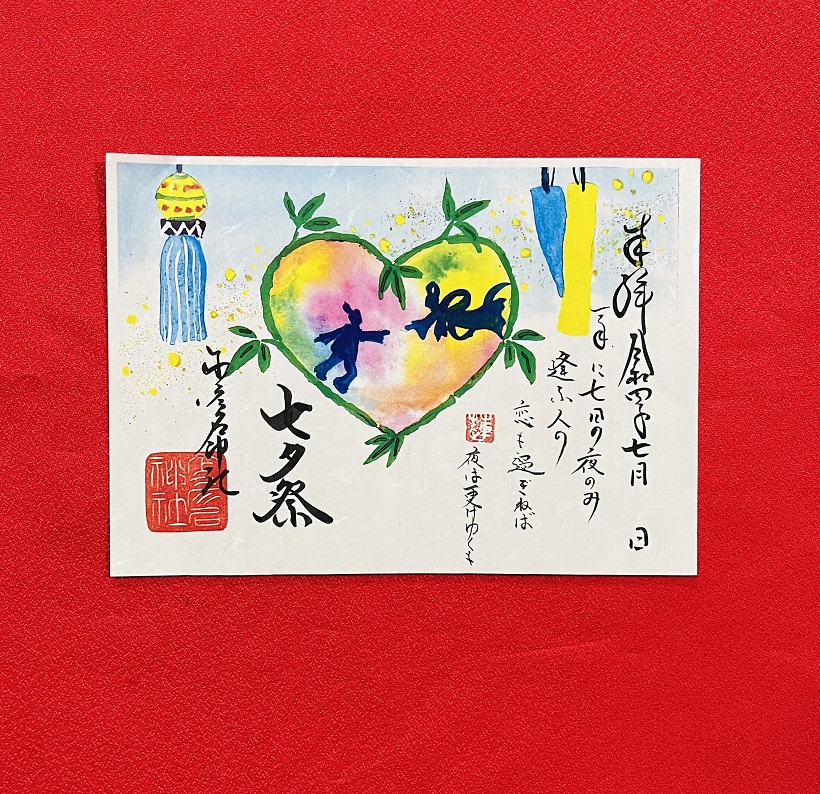 奉拝 令和四年七月 日
一年に七日の夜のみ
逢ふ人の
恋も過ぎねば
夜は更けゆくも
七夕祭
神社
神社